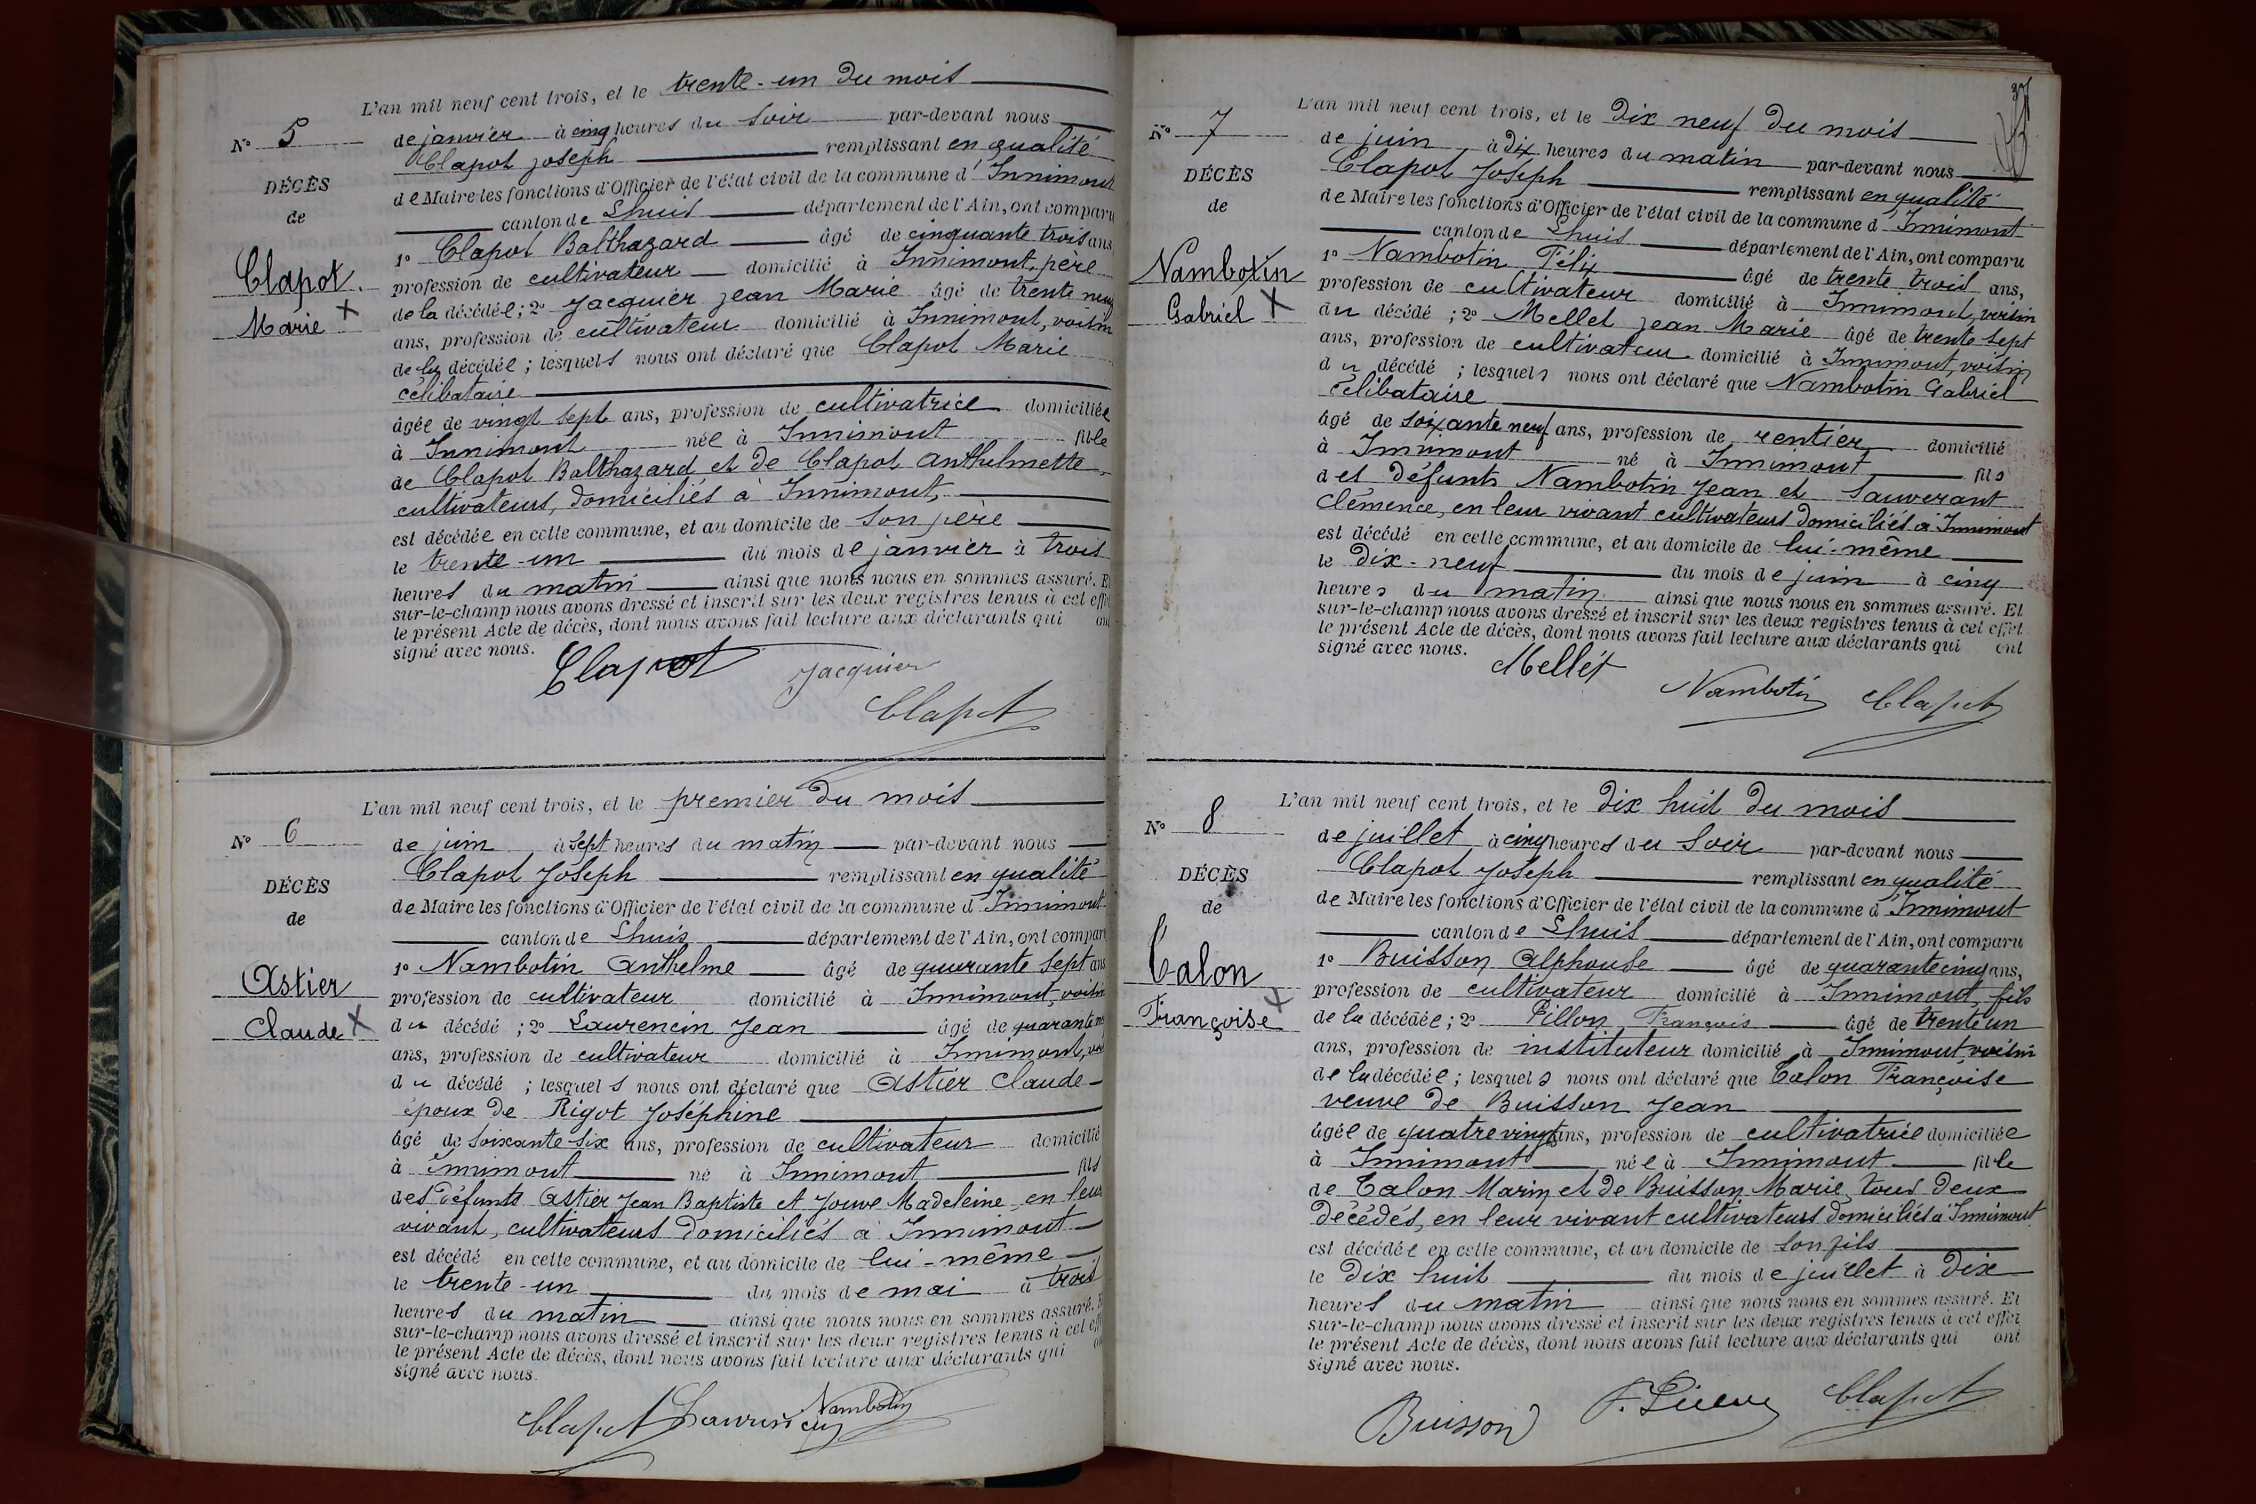 L'an mil neuf cent trois, et le trente-un du mois
N° 5
de janvier à cinq heures du soir par-devant nous
Clapot Joseph remplissant en qualité
DÉCÈS
de Maire les fonctions d'Officier de l'état civil de la commune d'Innimont
de
canton de Lhuis département de l'Ain, ont comparu
1° Clapot Balthazard âgé de cinquante trois ans
Clapot
profession de cultivateur domicilié à Innimont, père
Marie X
de la décédée; 2° Jacquier Jean Marie âgé de trente neuf
ans, profession de cultivateur domicilié à Innimont, voisin
de la décédée; lesquels nous ont déclaré que Clapot Marie
célibataire
âgée de vingt sept ans, profession de cultivatrice domiciliée
à Innimont née à Innimont fille
de Clapot Balthazard et de Clapot Anthelmette
cultivateurs, domiciliés à Innimont,
est décédée en cette commune, et au domicile de son père
le trente-un du mois de janvier à trois
heures du matin ainsi que nous nous en sommes assuré. E
sur-le-champ nous avons dressé et inscrit sur les deux registres tenus à cet effe
le présent Acte de décès, dont nous avons fait lecture aux déclarants qui on
signé avec nous.
Clapot Jacquier
Clapot
L'an mil neuf cent trois, et le premier du mois
N° 6
de juin à sept heures du matin par-devant nous
Clapot Joseph remplissant en qualité
DÉCÈS
de Maire les fonctions d'Officier de l'état civil de la commune d'Innimont
de
canton de Lhuis département de l'Ain, ont compar
1° Nambotin Anthelme âgé de quarante sept ans
Astier
profession de cultivateur domicilié à Innimont, voisin
Claude X
du décédé; 2° Laurencin Jean âgé de quarante
ans, profession de cultivateur domicilié à Innimont, voi
du décédé; lesquels nous ont déclaré que Astier Claude
époux de Rigot Joséphine
âgé de soixante-six ans, profession de cultivateur domicilié
à Innimont né à Innimont fils
des défunts Astier Jean Baptiste et Jouve Madeleine, en leur
vivant, cultivateurs domiciliés à Innimont
est décédé en cette commune, et au domicile de lui-même
le trente-un du mois de mai à trois
heures du matin ainsi que nous nous en sommes assuré. E
sur-le-champ nous avons dressé et inscrit sur les deux registres tenus à cet eff
le présent Acte de décès, dont nous avons fait lecture aux déclarants qui o
signé avec nous.
Clapot Laurencin Nambotin
37
L'an mil neuf cent trois, et le dix neuf du mois
N° 7
de juin à dix heures du matin par-devant nous
Clapot Joseph remplissant en qualité
DÉCÈS
de Maire les fonctions d'Officier de l'état civil de la commune d'Innimont
de
canton de Lhuis département de l'Ain, ont comparu
1° Nambotin Félix âgé de trente trois ans,
Nambotin
profession de cultivateur domicilié à Innimont, voisin
Gabriel X
du décédé; 2° Mellet Jean Marie âgé de trente sept
ans, profession de cultivateur domicilié à Innimont, voisin
du décédé; lesquels nous ont déclaré que Nambotin Gabriel
célibataire
âgé de soixante neuf ans, profession de rentier domicilié
à Innimont né à Innimont fils
des défunts Nambotin Jean et Sauverant
Clémence, en leur vivant cultivateurs domiciliés à Innimont
est décédé en cette commune, et au domicile de lui-même
le dix-neuf du mois de juin à cinq
heures du matin ainsi que nous nous en sommes assuré. Et
sur-le-champ nous avons dressé et inscrit sur les deux registres tenus à cet effet
le présent Acte de décès, dont nous avons fait lecture aux déclarants qui ont
signé avec nous.
Mellet
Nambotin Clapot
L'an mil neuf cent trois, et le dix huit du mois
N° 8
de juillet à cinq heures du soir par-devant nous
Clapot Joseph remplissant en qualité
DÉCÈS
de Maire les fonctions d'Officier de l'état civil de la commune d'Innimont
de
canton de Lhuis département de l'Ain, ont comparu
1° Buisson Alphonse âgé de quarante cinq ans,
Calon
profession de cultivateur domicilié à Innimont, fils
Françoise X
de la décédée; 2° Pillon François âgé de trente un
ans, profession de instituteur domicilié à Innimont voisin
de la décédée; lesquels nous ont déclaré que Calon Françoise
veuve de Buisson Jean
âgée de quatre vingts ans, profession de cultivatrice domiciliée
à Innimont née à Innimont fille
de Calon Marin et de Buisson Marie, tous deux
décédés, en leur vivant cultivateurs domiciliés à Innimont
est décédée en cette commune, et au domicile de son fils
le dix huit du mois de juillet à dix
heures du matin ainsi que nous nous en sommes assuré. Et
sur-le-champ nous avons dressé et inscrit sur les deux registres tenus à cet effet
le présent Acte de décès, dont nous avons fait lecture aux déclarants qui ont
signé avec nous.
Buisson Clapot